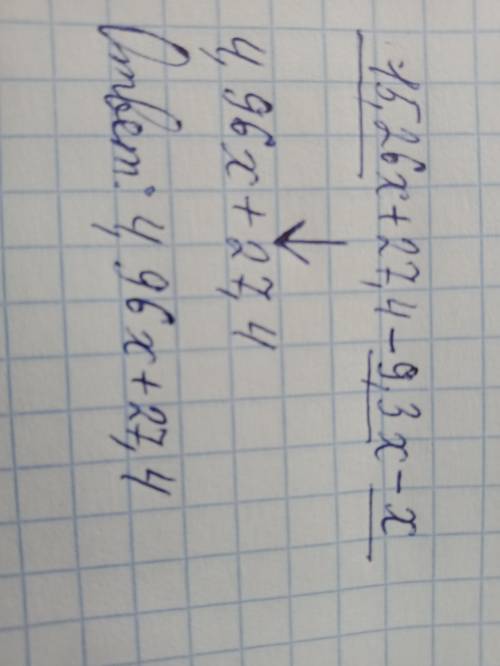 15,26x+27,4-9,3x-x
4,96x+27,4
Ответ: 4,96x+27,4